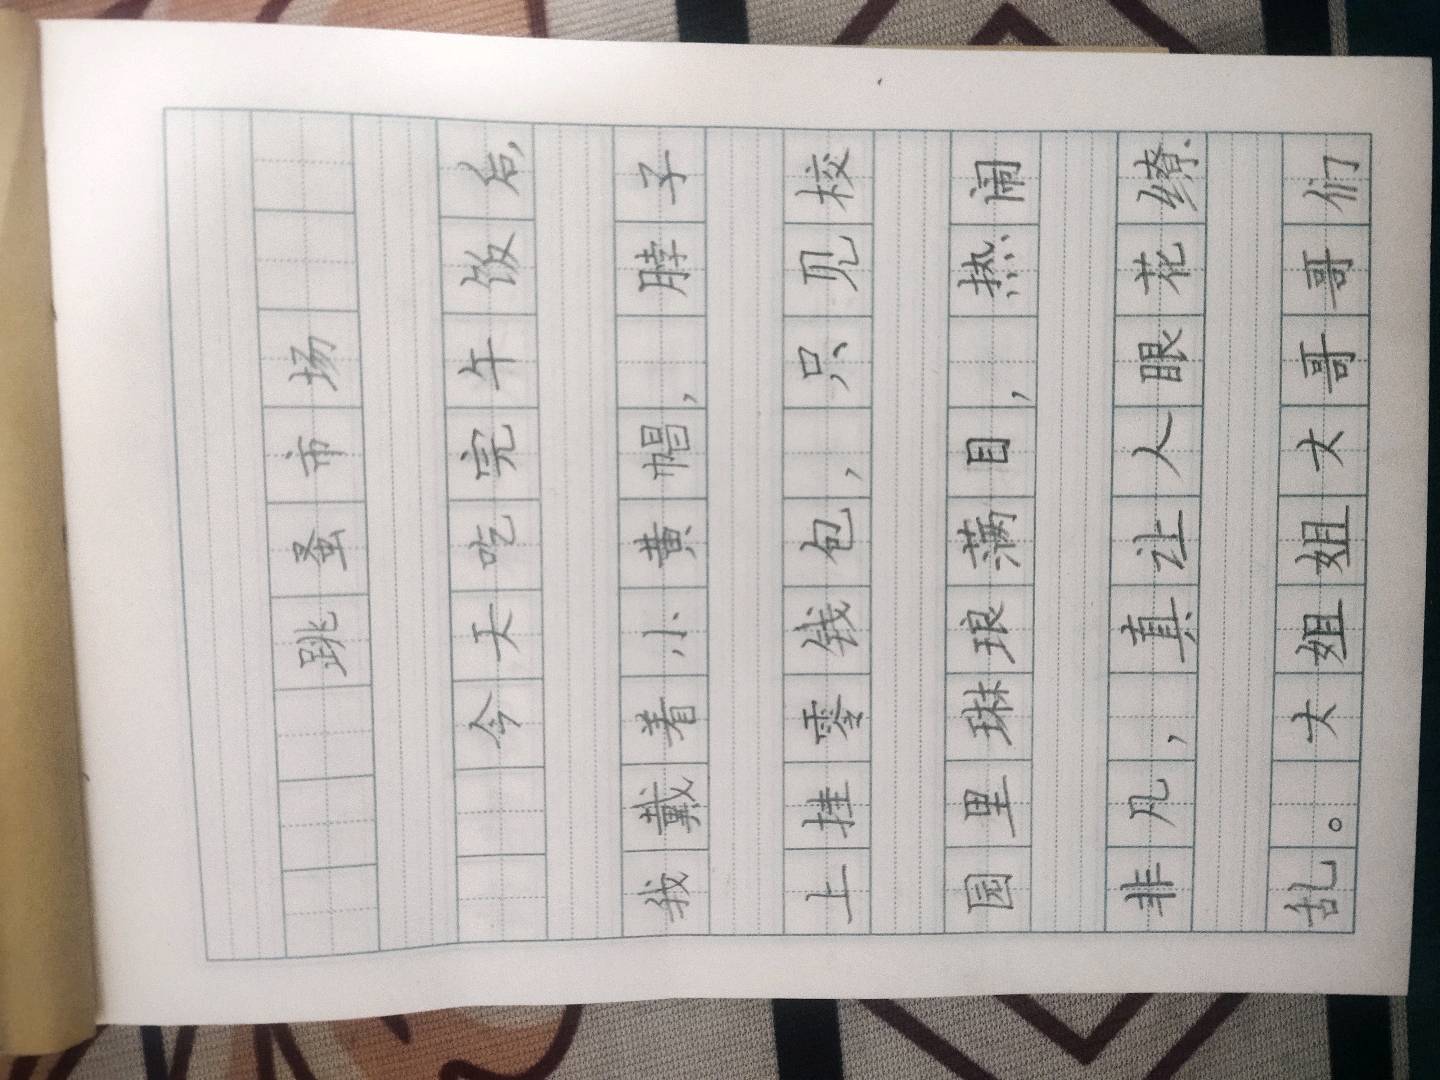 跳蚤市场
今天吃完午饭后，
我戴着小黄帽，脖子
上挂零钱包，只见校
园里琳琅满目，热闹
非凡，真让人眼花缭
乱。大姐姐大哥哥们